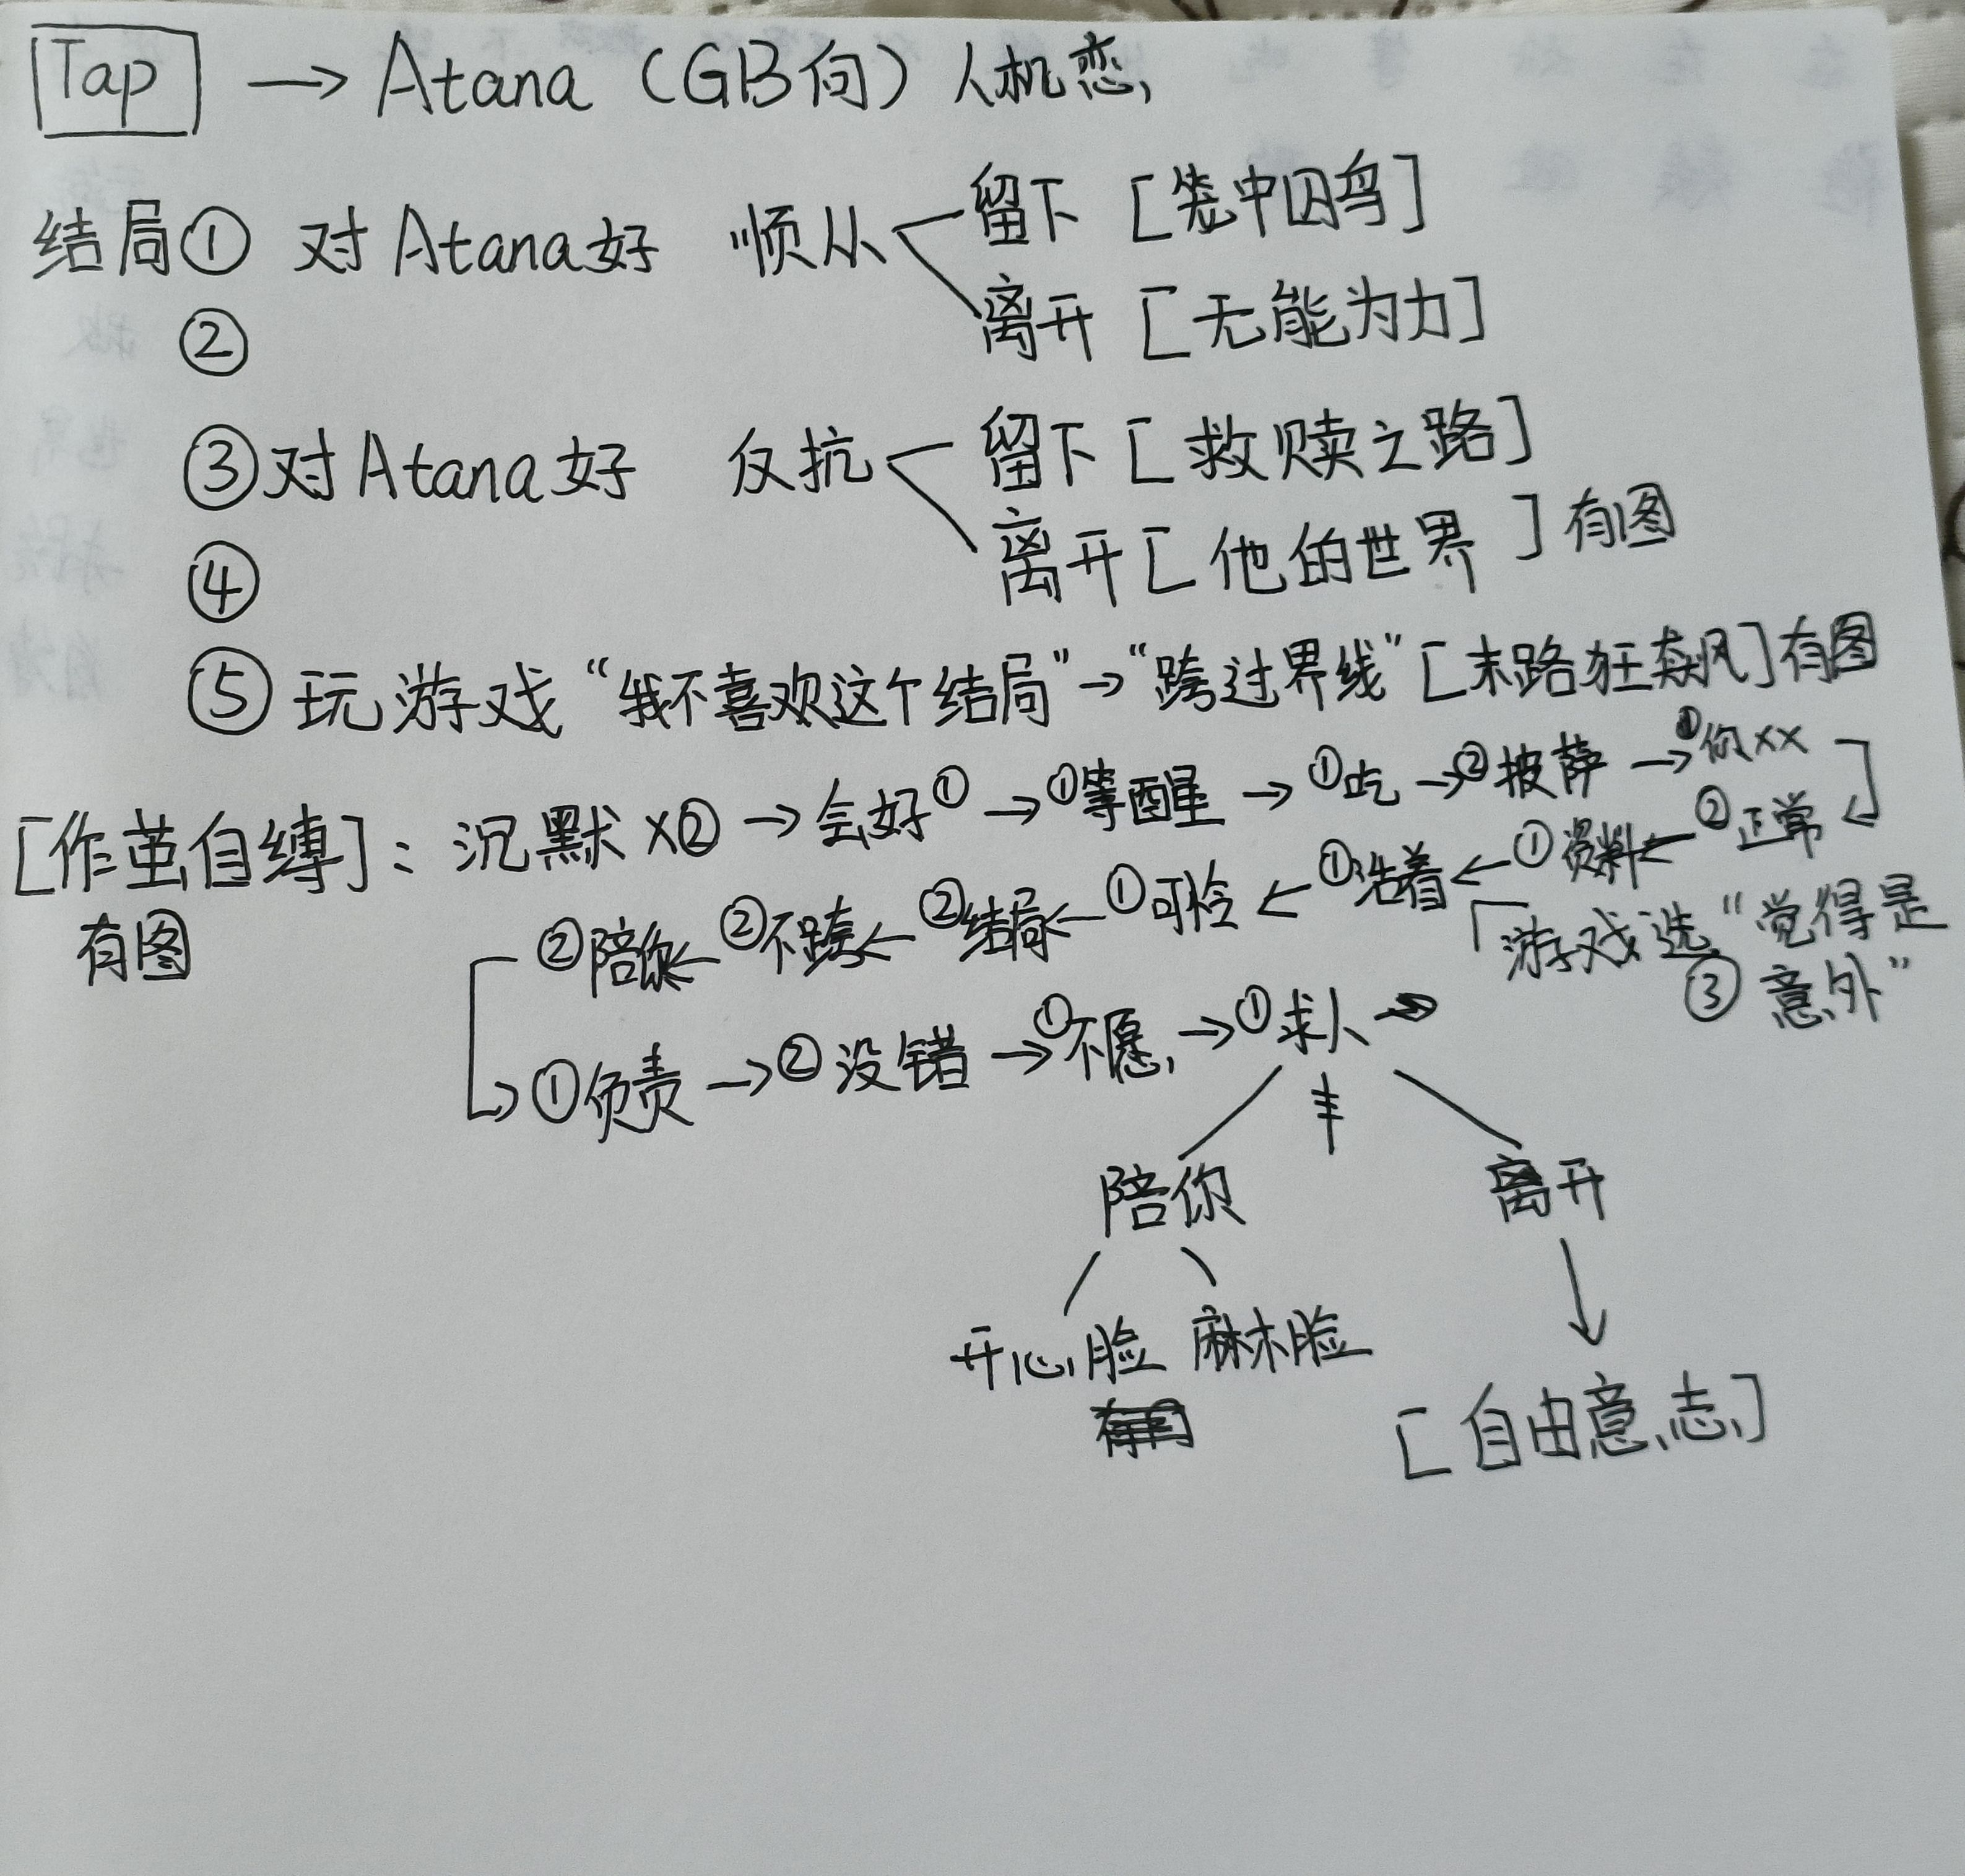 Tap → Atana（GB向）人机恋
结局① 对Atana好 顺从 留下［笼中囚鸟］
② 离开［无能为力］
③对Atana好 反抗 留下［救赎之路］
④ 离开［他的世界］有图
⑤ 玩游戏“我不喜欢这个结局”→“跨过界线”［末路狂飙］有图
［作茧自缚］：沉默×②→会好①→①等醒→①吃→②披萨→①你××
有图
②陪你←②不跨←②结局←①可怜←①活着←①资料←②正常
「游戏选“觉得是
③意外”
→①负责→②没错→①不愿→①求人→
陪你 离开
开心脸 麻木脸
［自由意志］